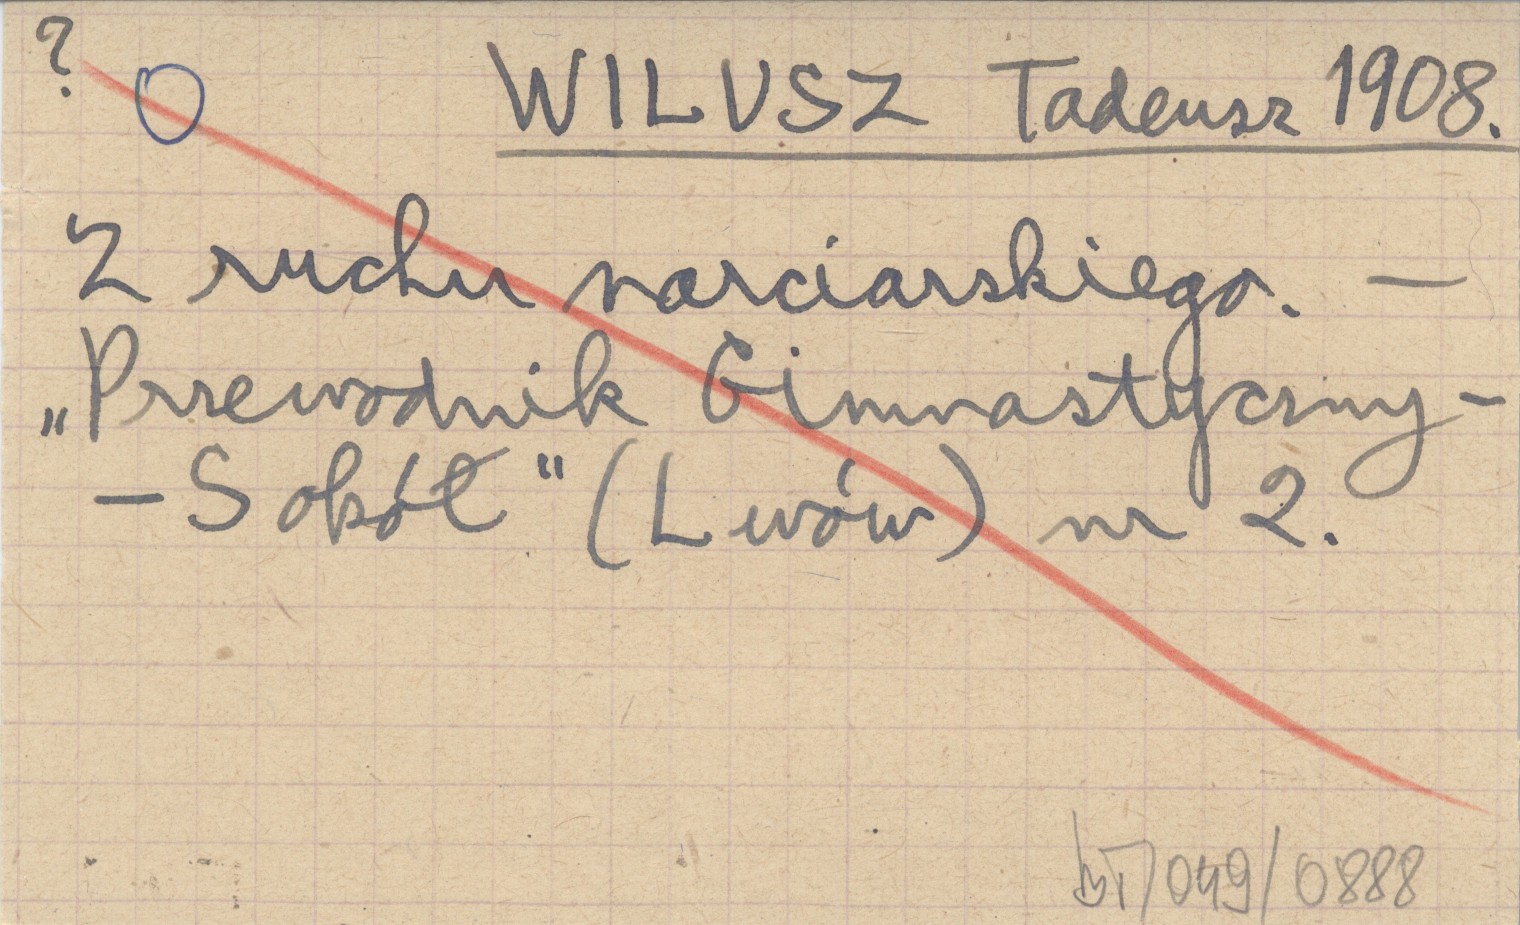 ?
O WILUSZ Tadeusz 1908.
Z ruchu narciarskiego. —
„Przewodnik Gimnastyczny -
- Sokół" (Lwów) nr 2.
/049/0888